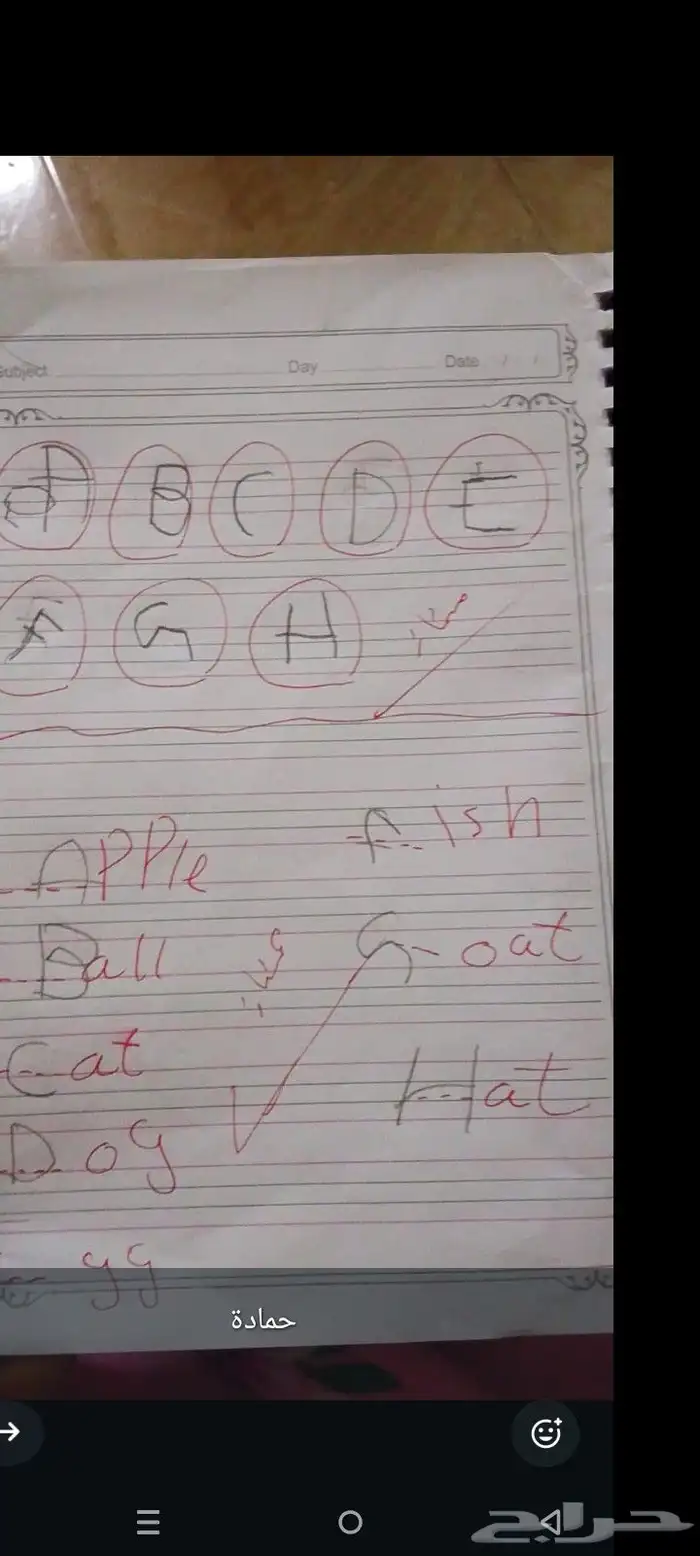 Subject Day Date / /
A B C D E
F G H
Apple fish
Ball Goat
Cat Hat
Dog
gg
حمادة
حراج